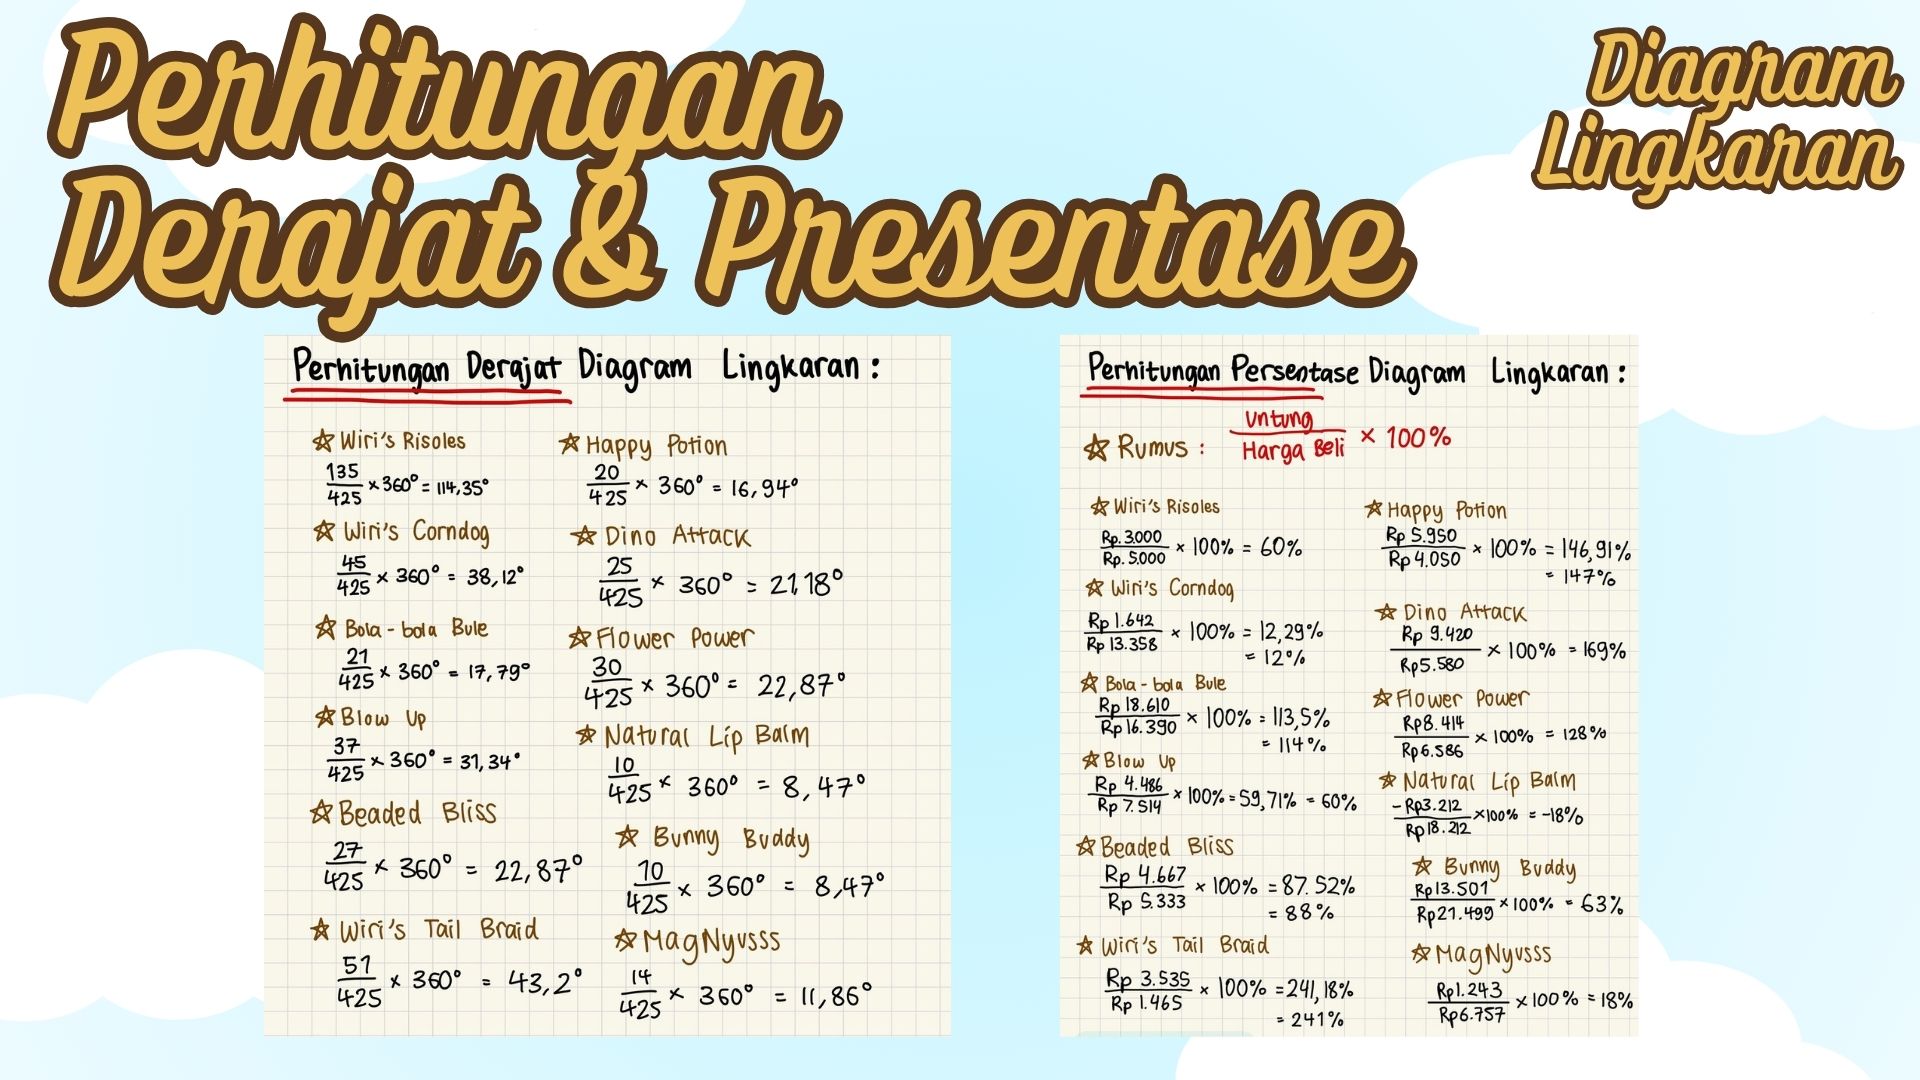 Perhitungan
Derajat & Presentase
Diagram
Lingkaran
Perhitungan Derajat Diagram Lingkaran :
☆ Wiri's Risoles
135/425 × 360° = 114,35°
☆ Wiri's Corndog
45/425 × 360° = 38,12°
☆ Bola-bola Bule
21/425 × 360° = 17,79°
☆ Blow Up
37/425 × 360° = 31,34°
☆ Beaded Bliss
27/425 × 360° = 22,87°
☆ Wiri's Tail Braid
51/425 × 360° = 43,2°
☆ Happy Potion
20/425 × 360° = 16,94°
☆ Dino Attack
25/425 × 360° = 21,18°
☆ Flower Power
30/425 × 360° = 22,87°
☆ Natural Lip Balm
10/425 × 360° = 8,47°
☆ Bunny Buddy
10/425 × 360° = 8,47°
☆ MagNyusss
14/425 × 360° = 11,86°
Perhitungan Persentase Diagram Lingkaran :
☆ Rumus : Untung/Harga Beli × 100%
☆ Wiri's Risoles
Rp. 3.000/Rp. 5.000 × 100% = 60%
☆ Wiri's Corndog
Rp 1.642/Rp 13.358 × 100% = 12,29%
= 12%
☆ Bola-bola Bule
Rp 18.610/Rp 16.390 × 100% = 113,5%
= 114%
☆ Blow Up
Rp 4.486/Rp 7.514 × 100% = 59,71% = 60%
☆ Beaded Bliss
Rp 4.667/Rp 5.333 × 100% = 87.52%
= 88%
☆ Wiri's Tail Braid
Rp 3.535/Rp 1.465 × 100% = 241,18%
= 241%
☆ Happy Potion
Rp 5.950/Rp 4.050 × 100% = 146,91%
= 147%
☆ Dino Attack
Rp 9.420/Rp 5.580 × 100% = 169%
☆ Flower Power
Rp 8.414/Rp 6.586 × 100% = 128%
☆ Natural Lip Balm
-Rp3.212/Rp 18.212 × 100% = -18%
☆ Bunny Buddy
Rp 13.501/Rp 21.499 × 100% = 63%
☆ MagNyusss
Rp1.243/Rp6.757 × 100% = 18%